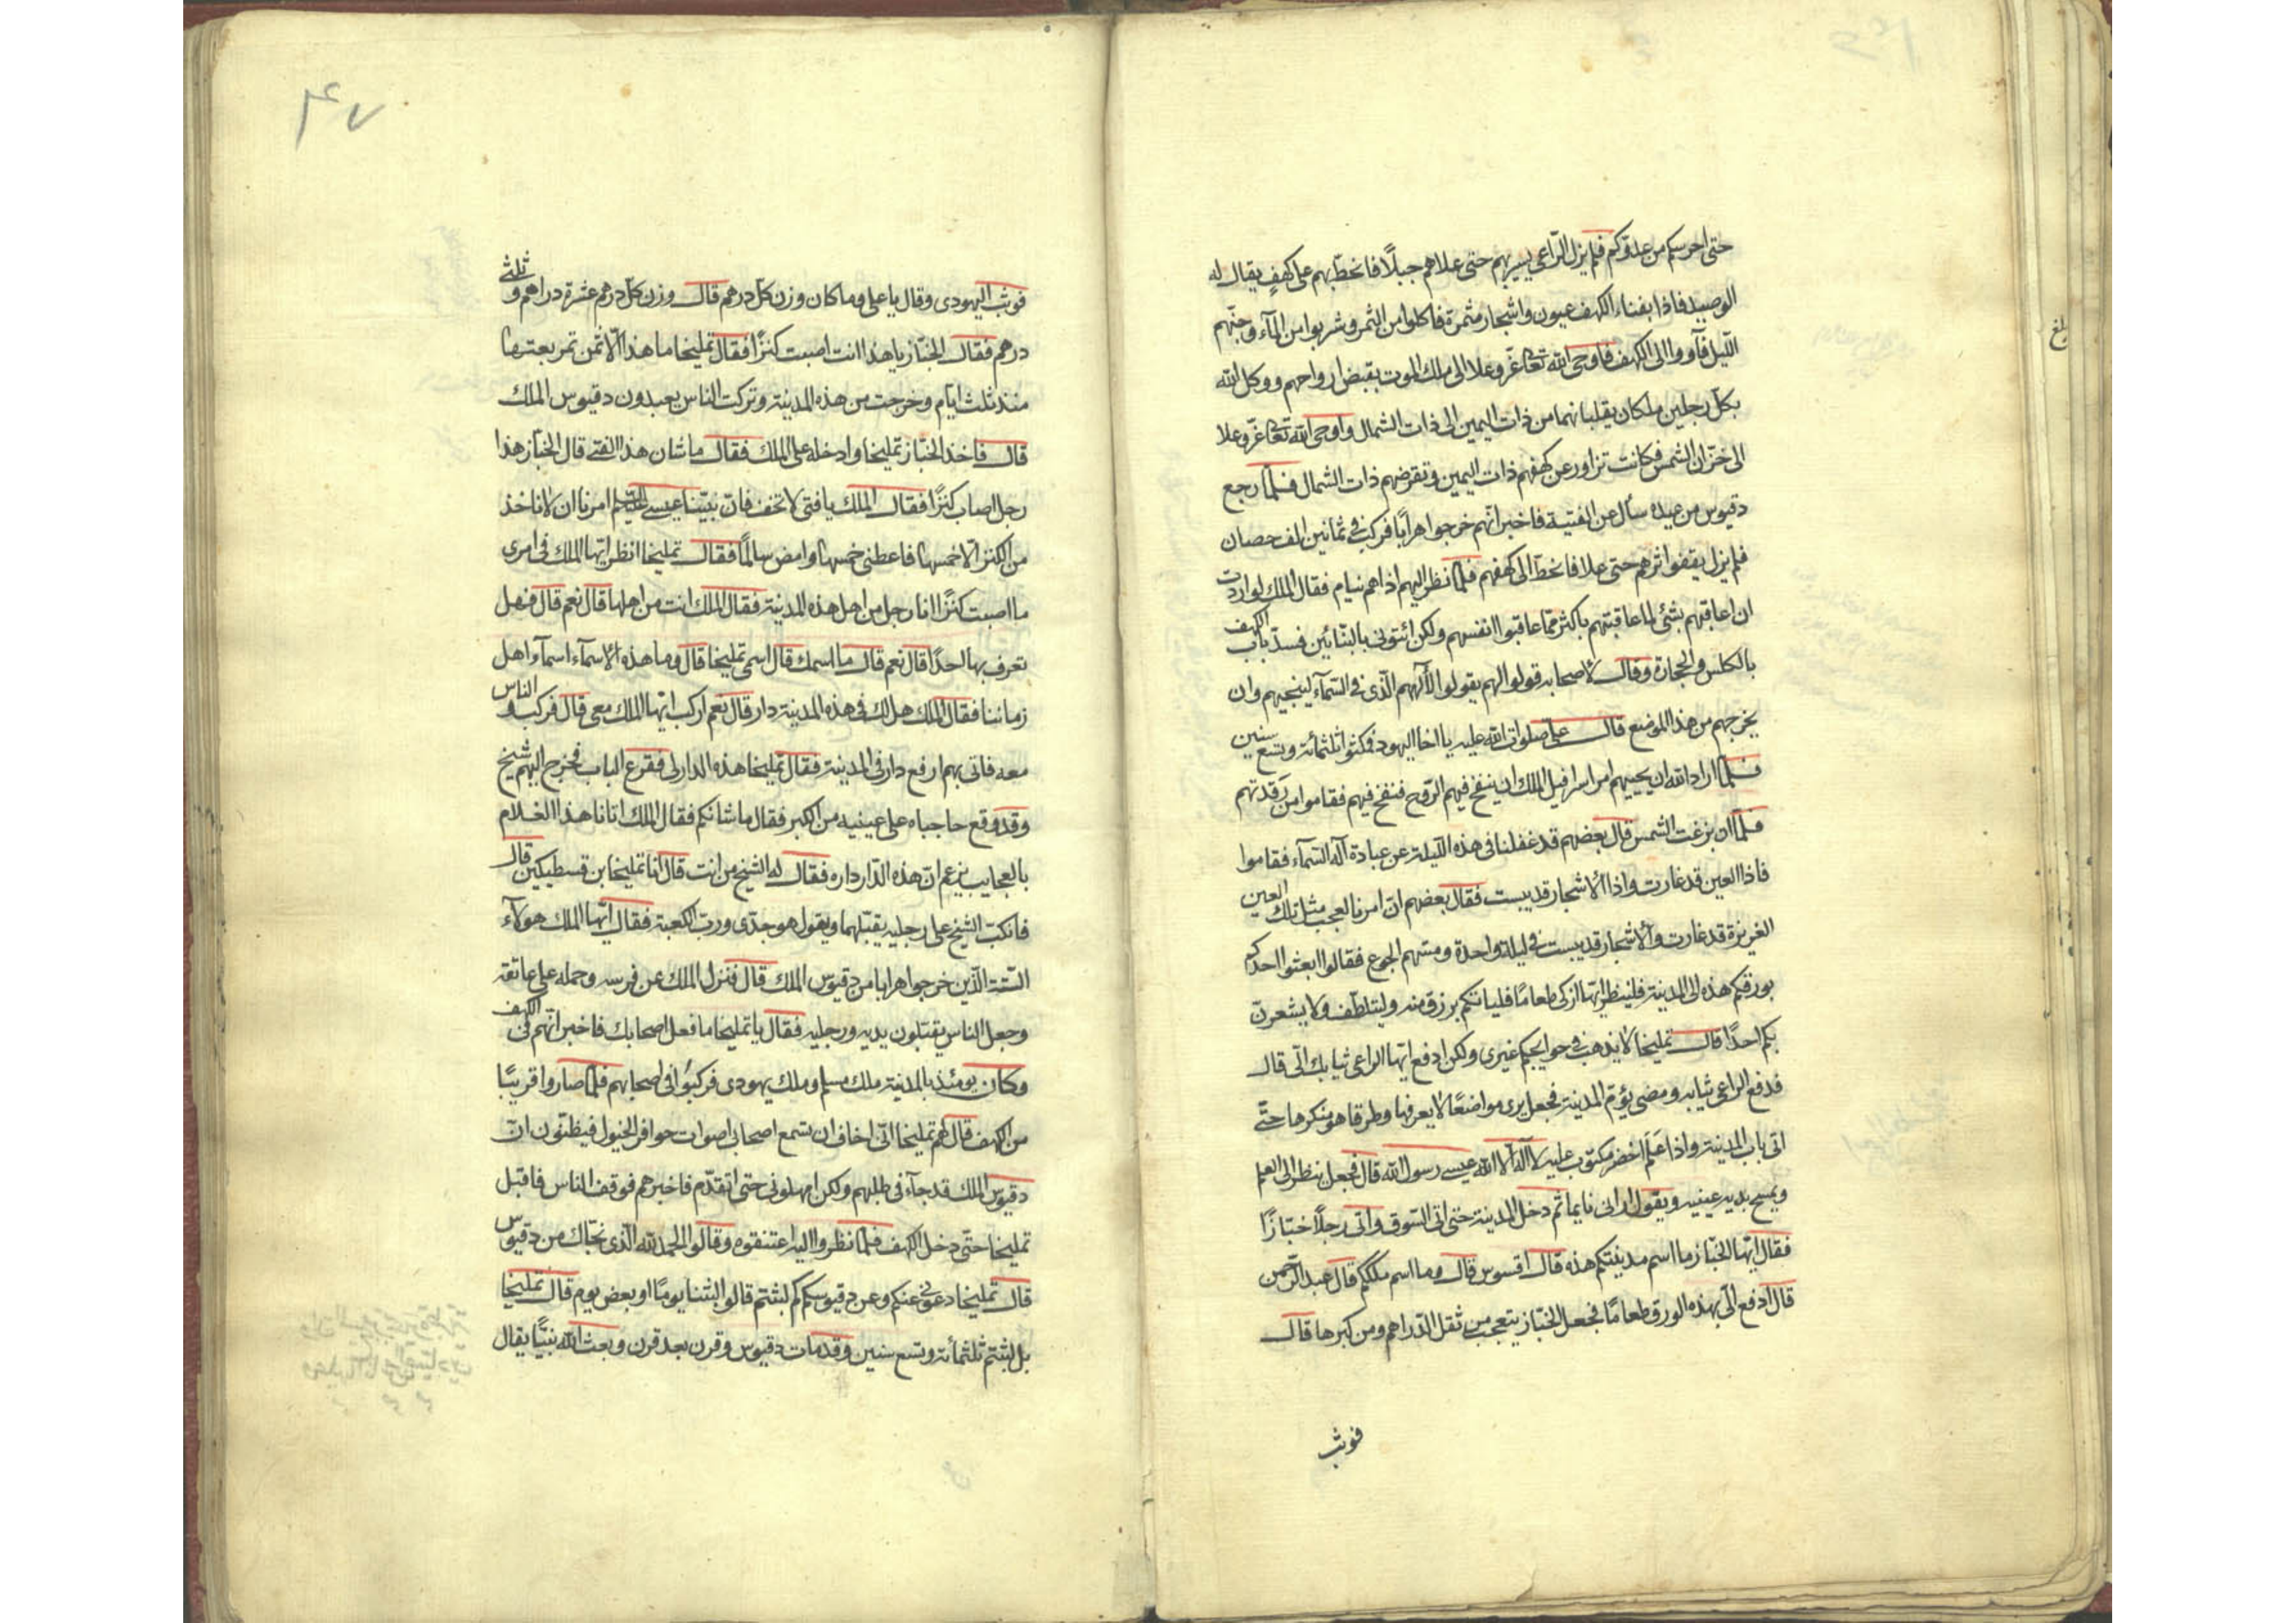 حتى احرسكم من عدوّكم فلم يزل الرّاعى يسير بهم حتى علا هم جبلًا فانحطّ بهم على كهفٍ يقال له
الوصيد فاذا بفناء الكهف عيون واشجار مثمرة فاكلوا من الثمر وشربوا من المآء وجنّهم
اللّيل فآووا الى الكهف فاوحى الله تعالى عزّ وعلا الى ملك الموت بقبض ارواحهم ووكل الله
بكلّ رجلين ملكان يقلبانهما من ذات اليمين الى ذات الشمال واوحى الله تعالى عزّ وعلا
الى خزّان الشمس فكانت تزاور عن كهفهم ذات اليمين وتقرضهم ذات الشمال فلمّا رجع
دقيوس من عيده سأل عن الفتية فاخبر انّهم خرجوا هرابًا فركب فى ثمانين الف حصان
فلم يزل يقفوا اثرهم حتى علا فانحطّ الى كهفهم فلمّا نظر اليهم اذا هم نيام فقال الملك لو اردت
ان اعاقبهم بشئى لما عاقبتهم باكثر ممّا عاقبوا انفسهم ولكن ائتونى بالبنّائين فسدّ باب الكهف
بالكلس والحجارة وقال لاصحابه قولوا لهم يقولوا لآلههم الّذى فى السّمآء لينجيهم وان
يخرجهم من هذا الموضع قال على صلوات الله عليه يا اخا اليهود فمكثوا ثلثمائة وتسع سنين
فلمّا اراد الله ان يحييهم امر اسرافيل الملك ان ينفخ فيهم الرّوح فنفخ فيهم فقاموا من رَقدتهم
فلمّا ان بزغت الشمس قال بعضهم قد غفلنا فى هذه اللّيلة عن عبادة آله السّمآء فقاموا
فاذا العين قد غارت واذا الأشجار قد يبست فقال بعضهم انّ امرنا لعجب مثل تلك العين
الغزيرة قد غارت والأشجار قد يبست فى ليلة واحدة ومسّهم الجوع فقالوا ابعثوا احدكم
بورقكم هذه الى المدينة فلينظر ايّها ازكى طعامًا فلياتكم برزق منه وليتلطّف ولا يشعرنّ
بكم احدًا قال تمليخا لا يذهب فى حوايجكم غيرى ولكن ادفع ايّها الراعى ثيابك الىّ قال
فدفع الراعى ثيابه ومضى يؤمّ المدينة فجعل يرى مواضعًا لا يعرفها وطرقا هو منكرها حتّى
اتى باب المدينة واذا عَلَم اخضر مكتوب عليه لا آله الّا الله عيسى رسول الله قال فجعل ينظر الى العلم
ويمسح بيديه عينيه ويقول ارانى نايما ثم دخل المدينة حتى اتى السّوق واتى رجلًا خبّازًا
فقال ايّها الخبّاز ما اسم مدينتكم هذه قال اقسوس قال وما اسم ملككم قال عبد الرّحمن
قال ادفع الىّ بهذه الورق طعامًا فجعل الخبّاز يتعجب من ثقل الدّراهم ومن كبرها قال
فوثب
بلغ
۴۷
فوثب اليهودى وقال يا على وما كان وزن كلّ درهم قال وزن كلّ درهم عشرة دراهم وثلثى
درهم فقال الخبّاز يا هذا انت اصبت كنزًا فقال تمليخا ما هذا الّا ثمن تمر بعتها
منذ ثلث ايّام وخرجت من هذه المدينة وتركت الناس يعبدون دقيوس الملك
قال فاخذ الخبّاز تمليخا وادخله على الملك فقال ما شان هذا الفتى قال الخبّاز هذا
رجل اصاب كنزًا فقال الملك يا فتى لا تخف فانّ نبيّنا عيسى عليه السّلم امرنا ان لا ناخذ
من الكنز الّا خمسها فاعطنى خمسها وامض سالمًا فقال تمليخا انظر ايّها الملك فى امرى
ما اصبت كنزًا انا رجل من اهل هذه المدينة فقال الملك انت من اهلها قال نعم قال فهل
تعرف بها احدًا قال نعم قال ما اسمك قال اسمى تمليخا قال وما هذه الأسمآء اسمآء اهل
زماننا فقال الملك هل لك فى هذه المدينة دار قال نعم اركب ايّها الملك معى قال فركب والناس
معه فاتى بهم ارفع دار فى المدينة فقال تمليخا هذه الدار لى فقرع الباب فخرج اليهم شيخ
وقد وقع حاجباه على عينيه من الكبر فقال ما شانكم فقال الملك اتانا هذا الغلام
بالعجايب يزعم انّ هذه الدّار داره فقال له الشيخ من انت قال انا تمليخا بن قسطيكين قال
فانكبّ الشيخ على رجليه يقبّلهما ويقول هو جدّى وربّ الكعبة فقال ايّها الملك هولآء
السّتة الّذين خرجوا هرابا من دقيوس الملك قال فنزل الملك عن فرسه وحمله على عاتقه
وجعل الناس يقبّلون يديه ورجليه فقال يا تمليخا ما فعل اصحابك فاخبر انّهم فى الكهف
وكان يومئذ بالمدينة ملك مسلم وملك يهودى فركبوا فى اصحابهم فلمّا صاروا قريبًا
من الكهف قال لهم تمليخا انّى اخاف ان تسمع اصحابى اصوات حوافر الخيول فيظنّون انّ
دقيوس الملك قد جآء فى طلبهم ولكن امهلونى حتى اتقدّم فاخبرهم فوقف الناس فاقبل
تمليخا حتّى دخل الكهف فلمّا نظروا اليه اعتنقوه وقالوا الحمد لله الّذى نجّاك من دقيوس
قال تمليخا دعونى عنكم وعن دقيوسكم كم لبثتم قالوا لبثنا يومًا او بعض يوم قال تمليخا
بل لبثتم ثلثمائة وتسع سنين وقد مات دقيوس وقرن بعد قرن وبعث الله نبيًّا يقال